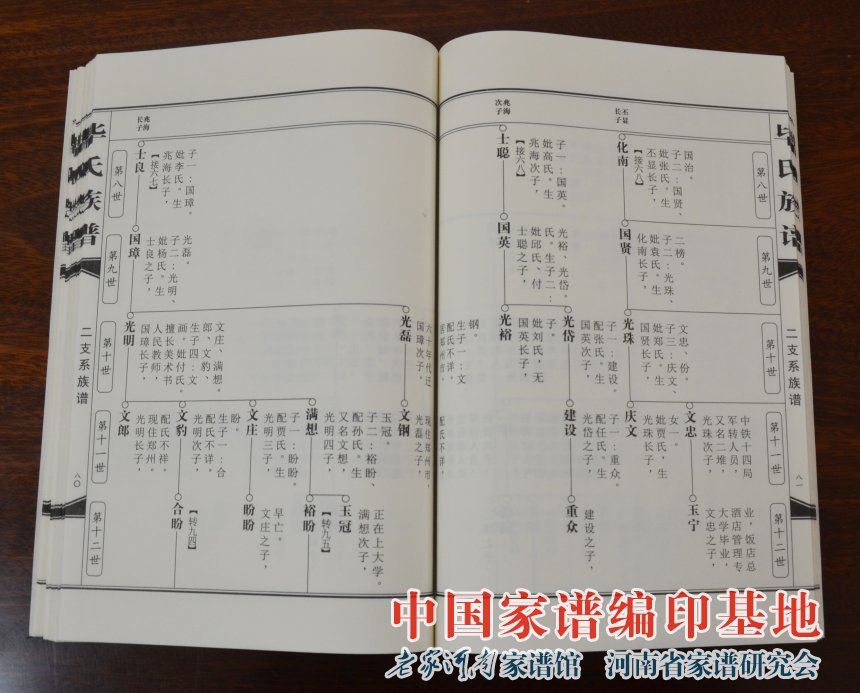 毕氏族谱
二支系族谱
八〇
第八世
兆海
长子
士良
【接六七】
兆海长子，
妣李氏。生
子一：国璋。
第九世
国璋
士良之子，
妣杨氏。生
子二：光明、
光磊。
第十世
光明
国璋长子，
人民教师，
擅长美术书
画。妣付氏。
生子四：文
郎、文豹、
文庄、满想。
光磊
国璋次子，
六十年代迁
居郑州市。
配氏不详，
生子一：文
钢。
第十一世
文郎
光明长子，
现住郑州。
配氏不祥。
文豹
光明次子，
配氏不详。
生子一：合
盼。
文庄
光明三子，
配贾氏。生
子一：盼盼。
满想
光明四子，
又名文想，
配孙氏。生
子二：裕盼、
玉冠。
文钢
光磊之子，
现住郑州市，
配氏不详。
第十二世
合盼
【转九四】
盼盼
文庄之子，
早亡。
裕盼
【转九五】
玉冠
满想次子，
正在上大学。
第八世
兆海
次子
士聪
【接六八】
兆海次子，
妣高氏。生
子一：国英。
丕显
长子
化南
【接六八】
丕显长子，
妣张氏。生
子二：国贤、
国治。
第九世
国英
士聪之子，
妣邱氏、付
氏。生子二：
光裕、光岱。
国贤
化南长子，
妣袁氏。生
子二：光珠、
二榜。
第十世
光裕
国英长子，
妣刘氏，无
子。
光岱
国英次子，
配张氏。生
子一：建设。
光珠
国贤长子，
妣郑氏。生
子三：庆文、
文忠、份。
第十一世
建设
光岱之子，
配任氏。生
子一：重众。
庆文
光珠长子，
妣贾氏，生
女一。
文忠
光珠次子，
又名二堆，
军转人员，
中铁十四局
第十二世
重众
建设之子，
玉宁
文忠之子，
大学毕业，
酒店管理专
业，饭店总
毕氏族谱
二支系族谱
八一
中国家谱编印基地
老家河南家谱馆 河南省家谱研究会